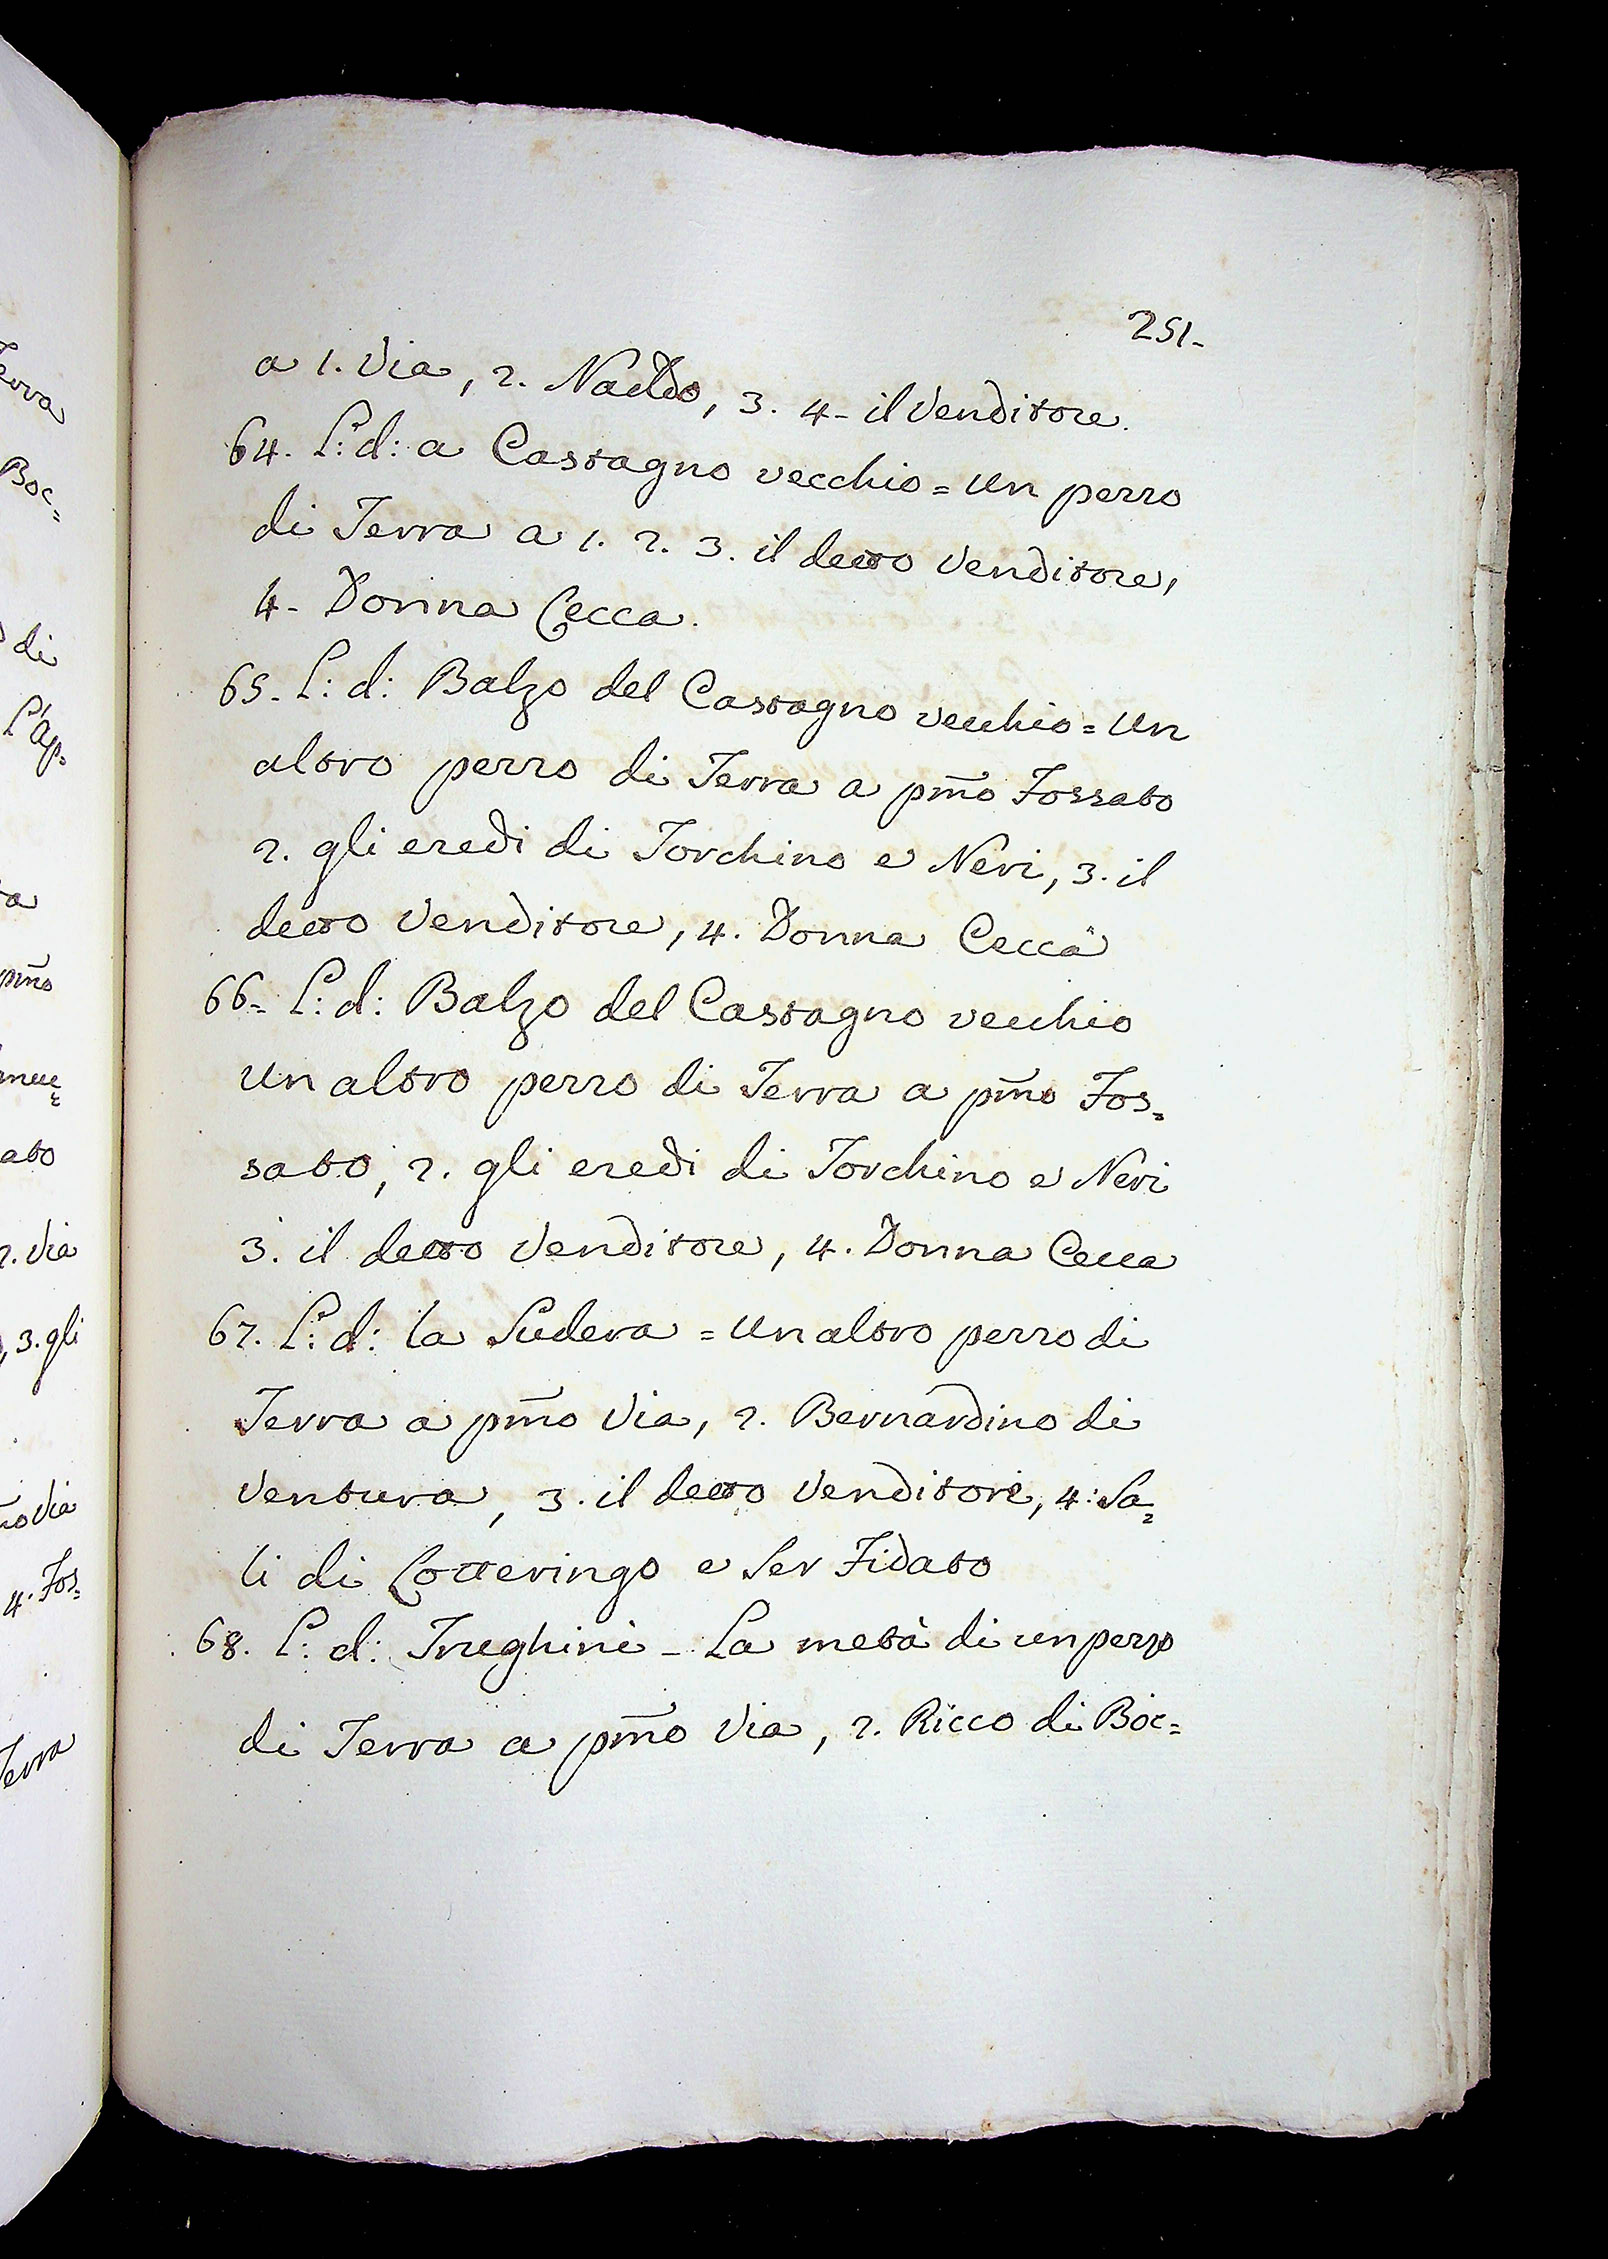 251-
a 1. Via, 2. Naldo, 3. 4- il Venditore.
64. L: d: a Castagno vecchio = Un pezzo
di Terra a 1. 2. 3. il detto Venditore,
4- Donna Cecca.
65. L: d: Balzo del Castagno vecchio = Un
altro pezzo di Terra a pmõ Fossato
2. gli eredi di Torchino e Neri, 3. il
detto Venditore, 4. Donna Cecca
66= L: d: Balzo del Castagno vecchio
Un altro pezzo di Terra a pmõ Fos=
sato, 2. gli eredi di Torchino e Neri
3. il detto Venditore, 4. Donna Cecca
67. L: d: la Sudera = Un altro pezzo di
Terra a pmõ Via, 2. Bernardino di
Ventura, 3. il detto Venditore, 4. Sa=
li di Lotteringo e Ser Fidato
68. L: d: Treghini - La metà di un pezzo
di Terra a pmõ Via, 2. Ricco di Boc=
Terra
Boc=
di
L'Ap=
pmõ
ato
2. Via
, 3. gli
Via
4. Fos=
Terra